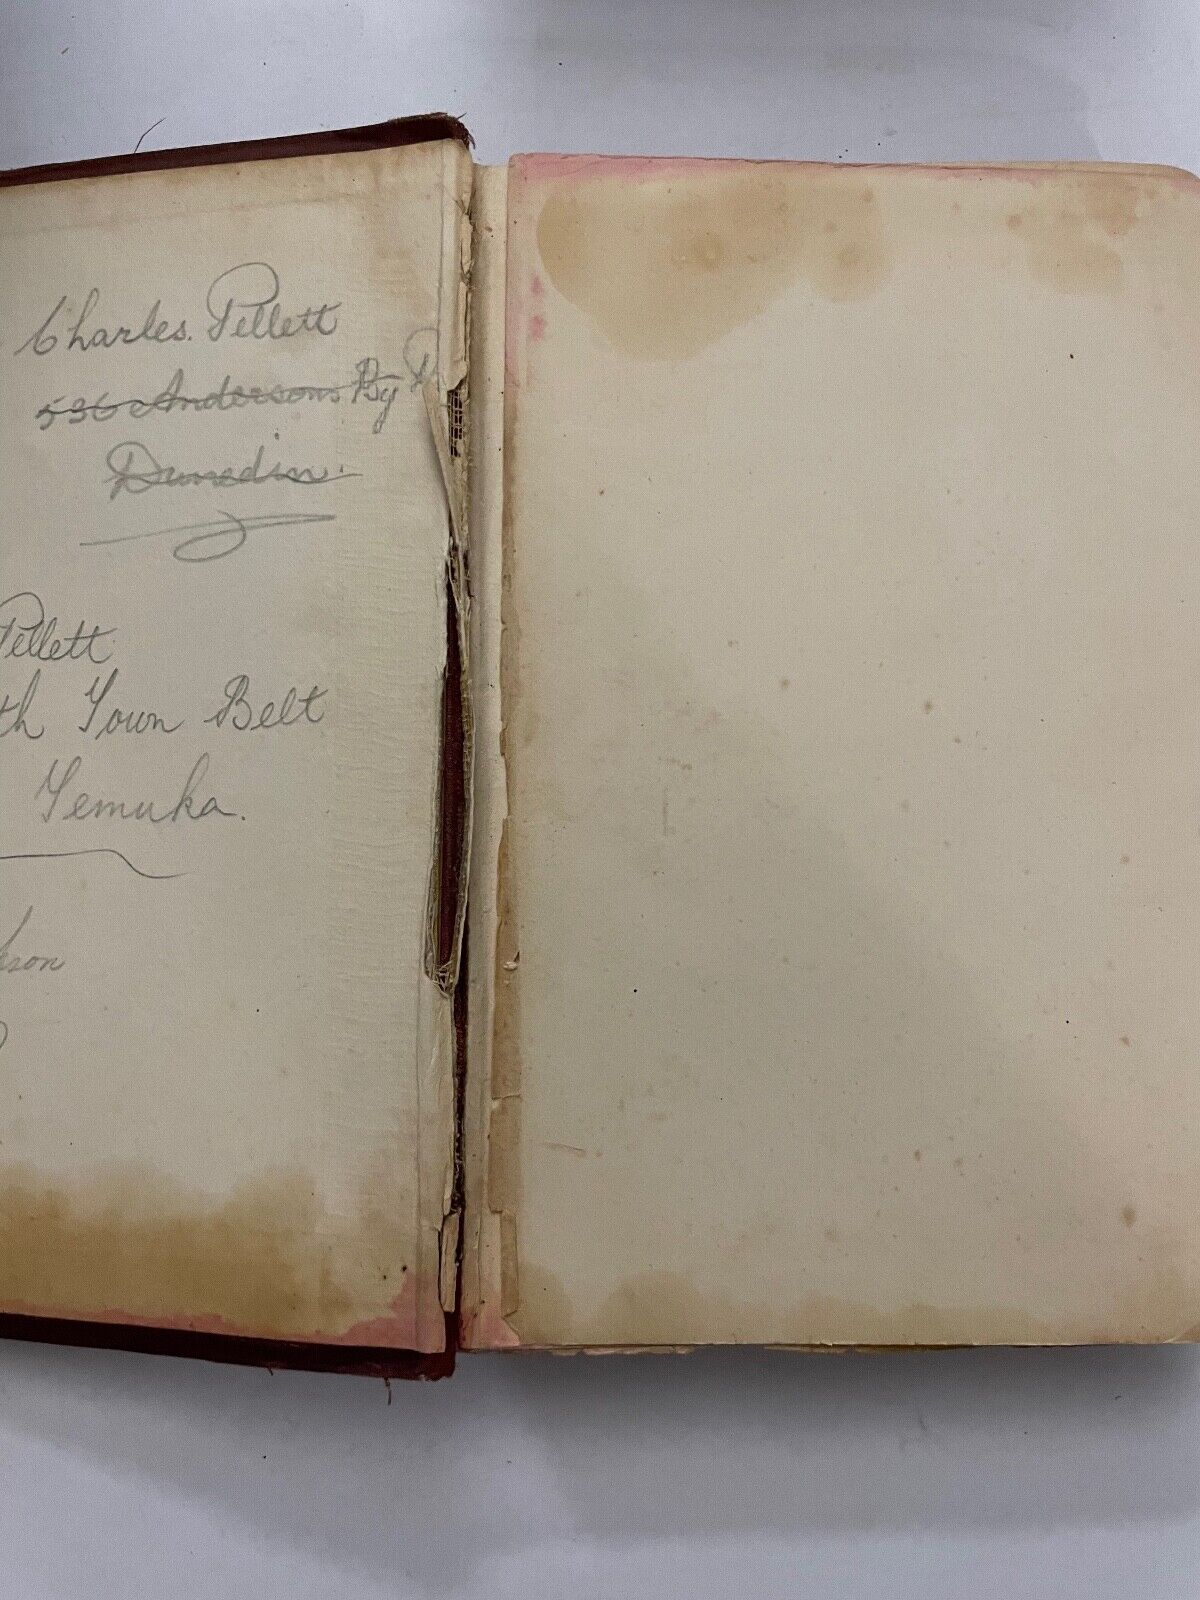 Charles. Pellett
536 Andersons By R
Dunedin.
Pellett
th Town Belt
Temuka.
son